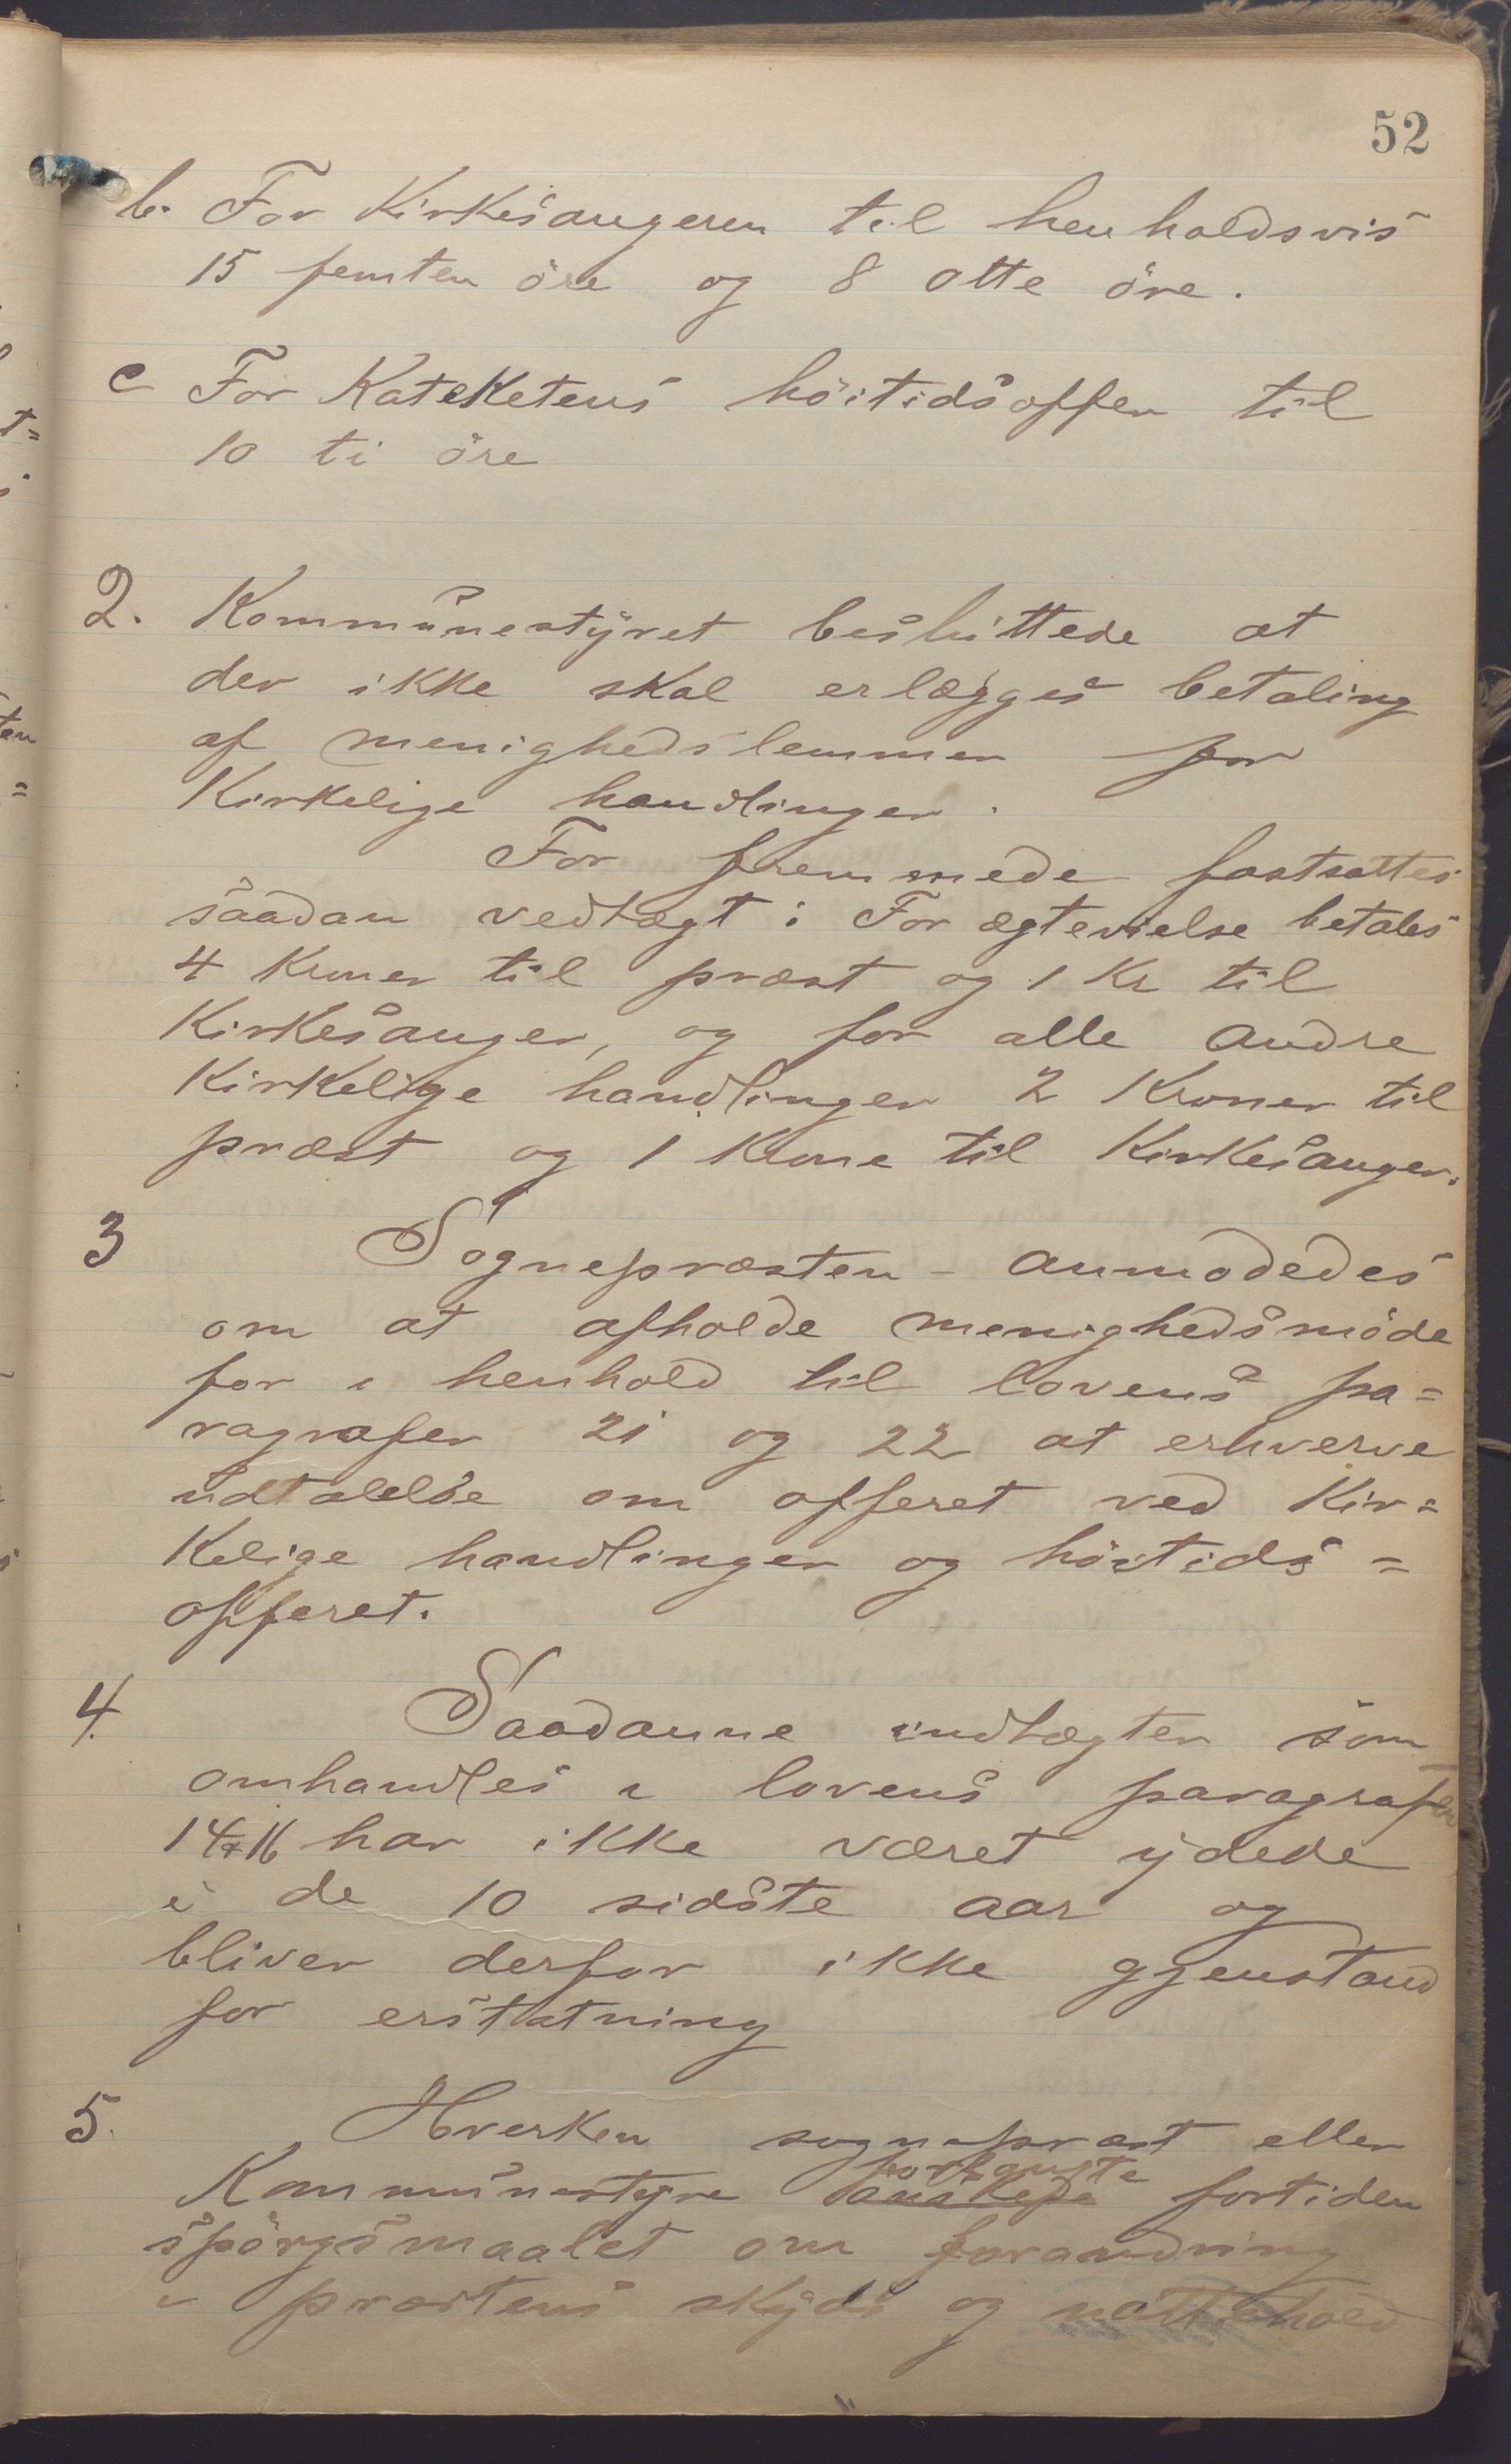 52
b. For Kirkesangeren til henholdsvis
15 femten öre og 8 otte öre.
c For Kateketens höitidsoffer til
10 ti öre
2. Kommunestyret besluttede at
der ikke skal erlægges betaling
af menighedslemmer for
Kirkelige handlinger.
For fremmede fastsattes
saadan vedtægt: For ægtevielse betales
4 Kroner til præst og 1 Kr til
Kirkesanger, og for alle andre
Kirkelige handlinger 2 Kroner til
præst og 1 Krone til Kirkesanger.
3 Sognepræsten anmodedes
om at afholde menighedsmöde
for i henhold til lovens pa=
ragrafer 21 og 22 at erhverve
udtalelse om offeret ved Kir=
Kelige handlinger og höitids=
offeret.
4. Saadanne indtægter som
omhandles i lovens paragrafer
14 & 16 har ikke været ydede
i de 10 sidste aar og
bliver derfor ikke gjenstand
for erstatning
5. Hverken sognepræst eller
forlangte
Kommunestyre önskede fortiden
spörgsmaalet om forandring
i præstens skyds og nattehold